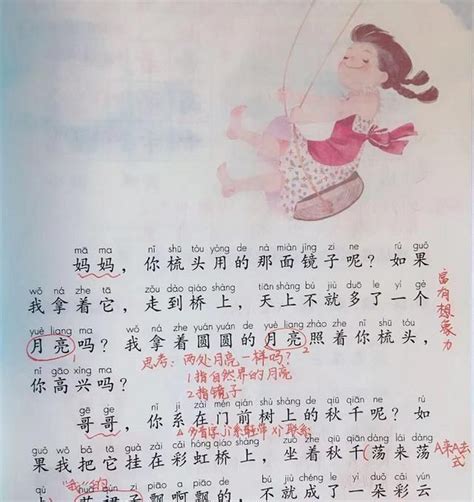 mā ma nǐ shū tóu yòng de nà miàn jìng zi ne rú guǒ
妈妈，你梳头用的那面镜子呢？如果
wǒ ná zhe tā zǒu dào qiáo shàng tiān shàng bú jiù duō le yí gè
我拿着它，走到桥上，天上不就多了一个
富有想象力
yuè liang ma wǒ ná zhe yuán yuán de yuè liang zhào zhe nǐ shū tóu
月亮吗？我拿着圆圆的月亮照着你梳头，
思考：两处月亮一样吗？
nǐ gāo xìng ma
你高兴吗？
1指自然界的月亮
2指镜子
gē ge nǐ jì zài mén qián shù shàng de qiū qiān ne rú
哥哥，你系在门前树上的秋千呢？如
guǒ wǒ bǎ tā guà zài cǎi hóng qiáo shàng zuò zhe qiū qiān dàng lái dàng
果我把它挂在彩虹桥上，坐着秋千荡来荡
A来A去式
裙子飘啊飘的，不就成了一朵彩云